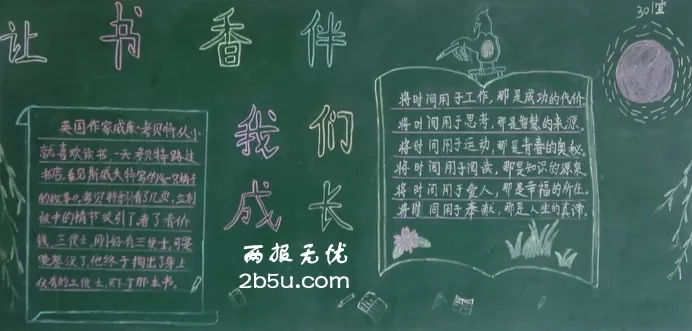 让书香伴
我们
成长
301宣
英国作家威廉·考贝特从小
就喜欢读书,一天考贝特路过
书店,看见斯威夫特写的《一只桶子
的故事》,考贝特翻看了几页,立刻
被中的情节吸引了,看了看价
钱,三便士,刚好有三便士,可要
晚餐没了,他终于掏出了身上
仅有的三便士,买了那本书。
将时间用于工作,那是成功的代价
将时间用于思考,那是智慧的来源.
将时间用于运动,那是青春的奥秘.
将时间用于阅读,那是知识的源泉.
将时间用于爱人,那是幸福的所在.
将时间用于奉献,那是人生的真谛.
两报无忧
2b5u.com